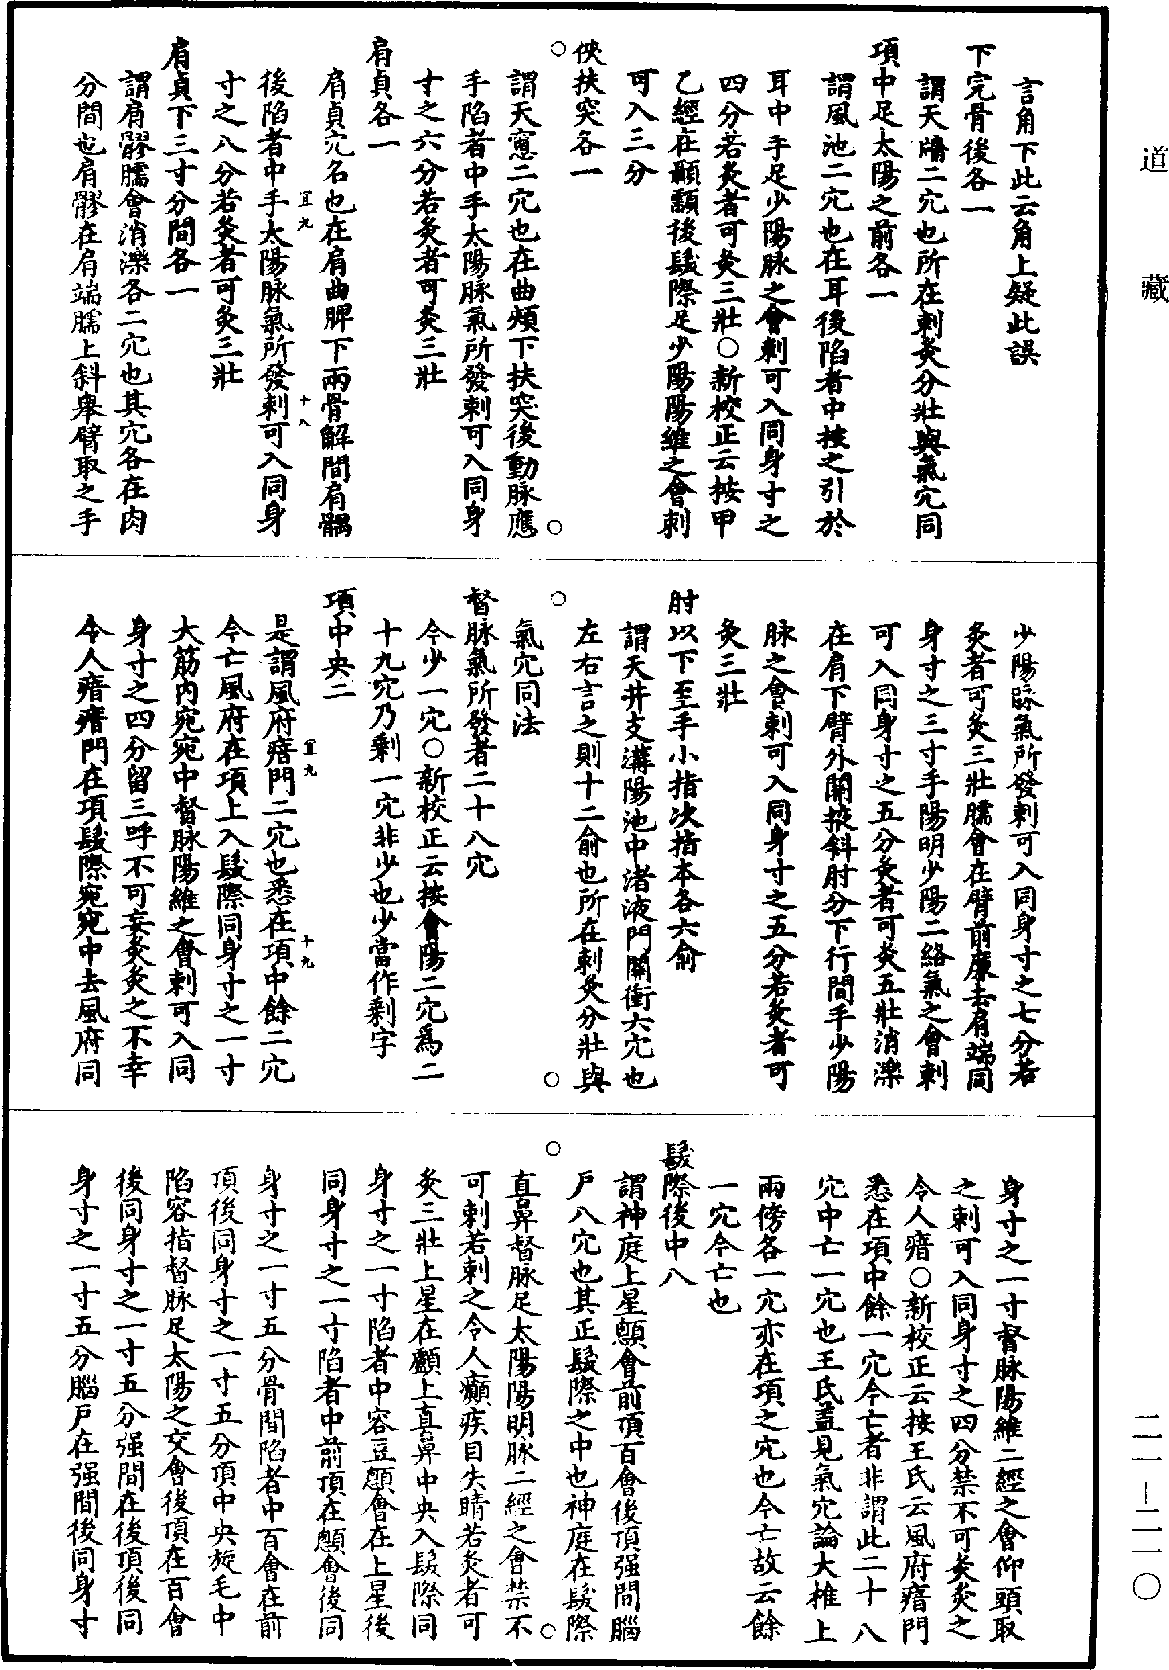 道藏
言角下此云角上疑此誤
下完骨後各一
謂天牖二穴也所在刺灸分壯與氣穴同
項中足太陽之前各一
謂風池二穴也在耳後陷者中按之引於
耳中手足少陽脉之會刺可入同身寸之
四分若灸者可灸三壯○新校正云按甲
乙經在顳顬後髮際足少陽陽維之會刺
可入三分
俠扶突各一
謂天窻二穴也在曲頰下扶突後動脉應
手陷者中手太陽脉氣所發刺可入同身
寸之六分若灸者可灸三壯
肩貞各一
肩貞穴名也在肩曲胛下兩骨解間肩髃
後陷者中手太陽脉氣所發刺可入同身
寸之八分若灸者可灸三壯
宜九
十八
肩貞下三寸分間各一
謂肩髎臑會消濼各二穴也其穴各在肉
分間也肩髎在肩端臑上斜舉臂取之手
少陽脉氣所發刺可入同身寸之七分若
灸者可灸三壯臑會在臂前廉去肩端同
身寸之三寸手陽明少陽二絡氣之會刺
可入同身寸之五分灸者可灸五壯消濼
在肩下臂外關掖斜肘分下行間手少陽
脉之會刺可入同身寸之五分若灸者可
灸三壯
肘以下至手小指次指本各六俞
謂天井支溝陽池中渚液門關衝六穴也
左右言之則十二俞也所在刺灸分壯與
氣穴同法
督脉氣所發者二十八穴
今少一穴○新校正云按會陽二穴爲二
十九穴乃剩一穴非少也少當作剩字
項中央二
是謂風府瘖門二穴也悉在項中餘二穴
今亡風府在項上入髮際同身寸之一寸
宜九
十九
大筋内宛宛中督脉陽維之會刺可入同
身寸之四分留三呼不可妄灸灸之不幸
令人瘖瘖門在項髮際宛宛中去風府同
身寸之一寸督脉陽維二經之會仰頭取
之刺可入同身寸之四分禁不可灸灸之
令人瘖○新校正云按王氏云風府瘖門
悉在項中餘一穴今亡者非謂此二十八
穴中亡一穴也王氏蓋見氣穴論大椎上
兩傍各一穴亦在項之穴也今亡故云餘
一穴今亡也
髮際後中八
謂神庭上星顖會前頂百會後頂强間腦
戶八穴也其正髮際之中也神庭在髮際
直鼻督脉足太陽陽明脉二經之會禁不
可刺若刺之令人癲疾目失睛若灸者可
灸三壯上星在顱上直鼻中央入髮際同
身寸之一寸陷者中容豆顖會在上星後
同身寸之一寸陷者中前頂在顖會後同
身寸之一寸五分骨間陷者中百會在前
頂後同身寸之一寸五分頂中央旋毛中
陷容指督脉足太陽之交會後頂在百會
後同身寸之一寸五分强間在後頂後同
身寸之一寸五分腦戶在强間後同身寸
二一－二一〇